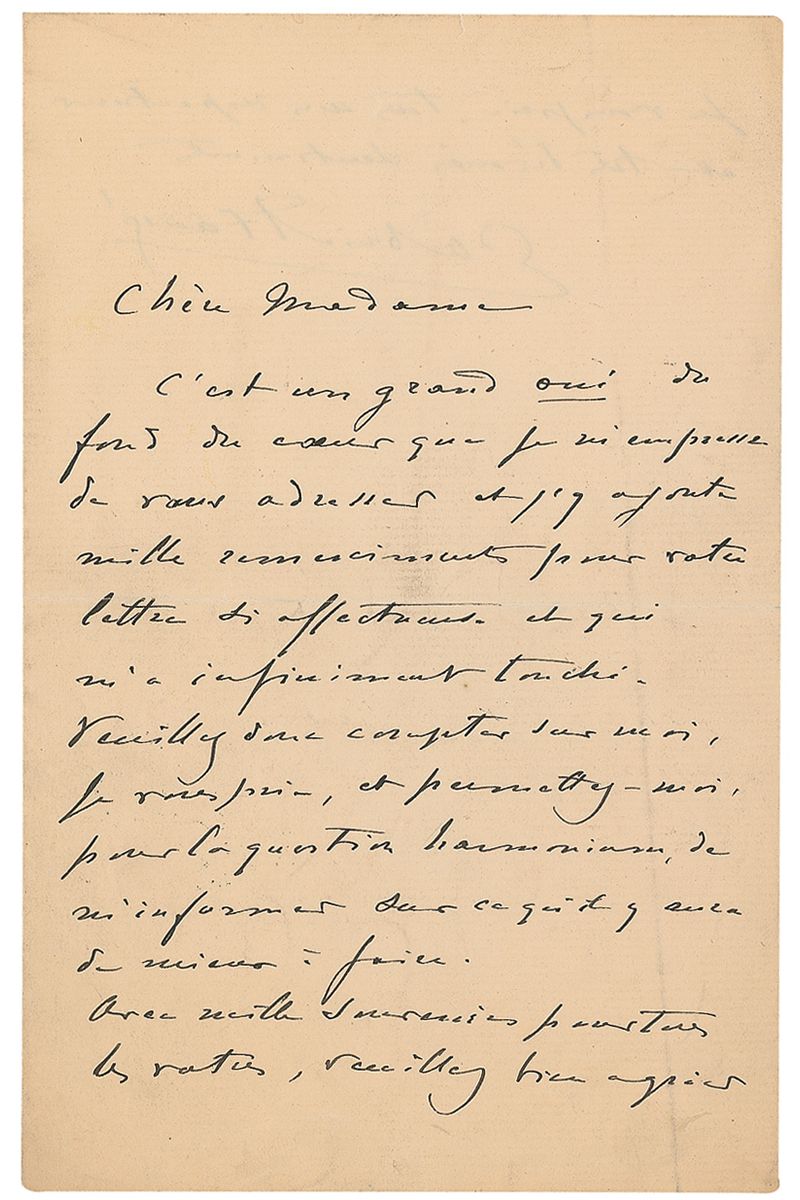 Chère Madame
C'est un grand oui du
fond du cœur que je m'empresse
de vous adresser et j'y ajoute
mille remerciments pour votre
lettre si affectueuse et qui
m'a infiniment touché.
Veuillez donc compter sur moi,
je vous prie, et permettez-moi,
pour la question harmonium, de
m'informer sur ce qu'il y aura
de mieux à faire.
Avec mille souvenirs pour tous
les votres, veuillez bien agréer